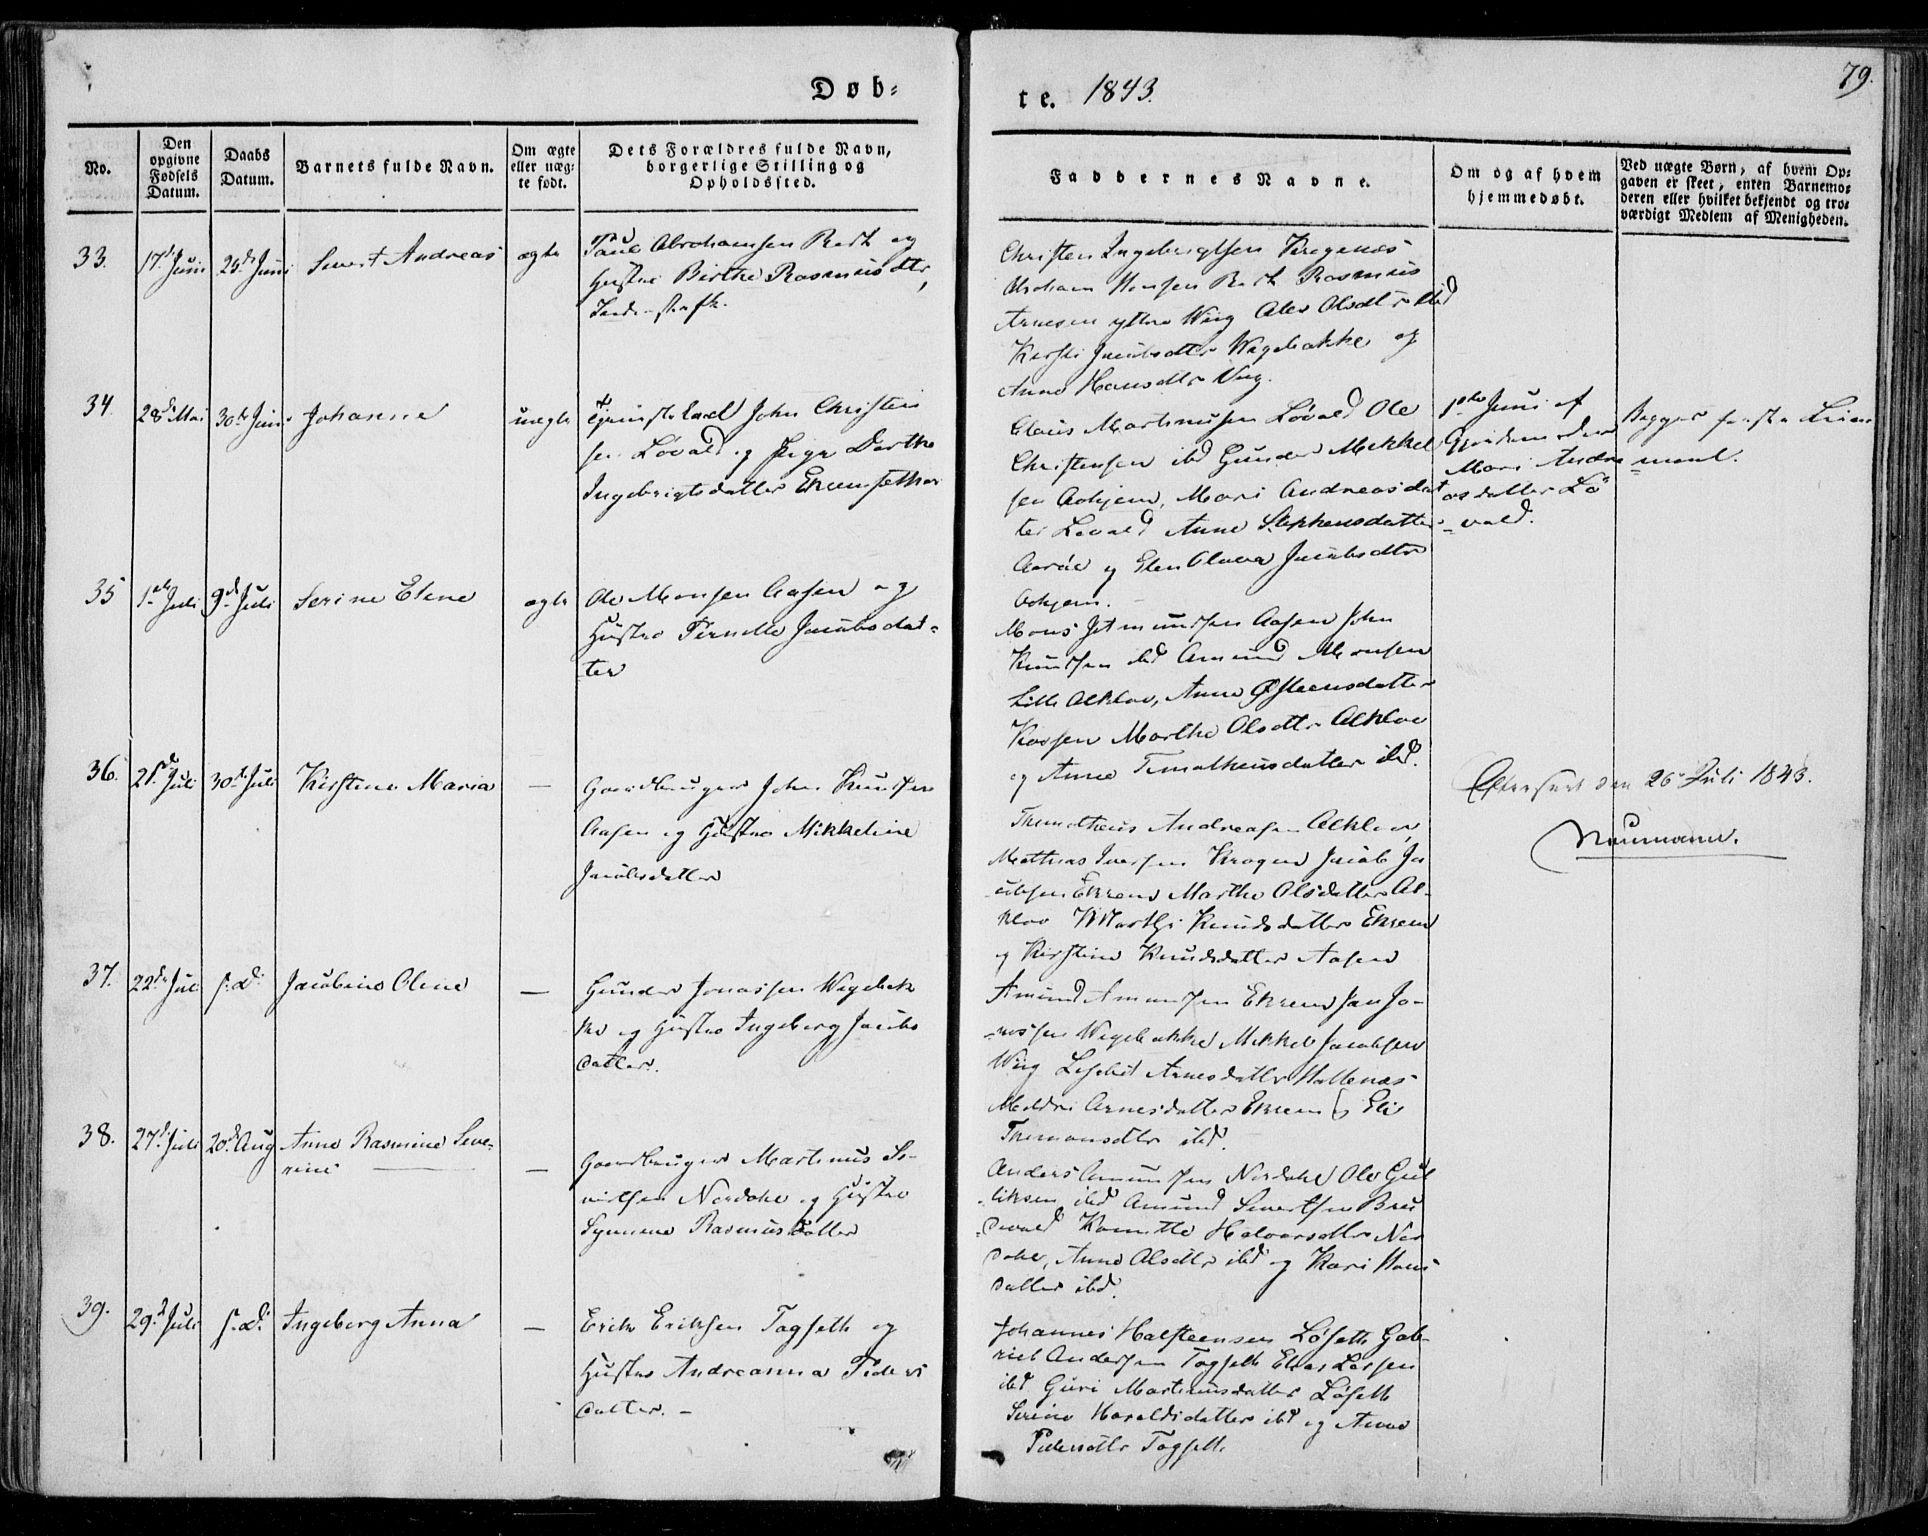 Døb-
te. 1843.
79.
No.
Den opgivne Fødsels Datum.
Daabs Datum.
Barnets fulde Navn.
Om ægte eller uægte født.
Dets Forældres fulde Navn, borgerlige Stilling og Opholdssted.
Faddernes Navne.
Om og af hvem hjemmedøbt.
Ved uægte Børn, af hvem Opgaven er skeet, enten Barnemoderen eller hvilket bekjendt og troværdigt Medlem af Menigheden.
33. 17d Juni 25d Juni Sivert Andreas ægte
Povel Abrahamsen Bark og
Hustru Birthe Rasmusdtr,
Christen Ingebrigtsen Krogenæs
Abraham Hansen Bark Rasmus
Arnesen yttre Wiig Ales Olsdtr ibid
Kirsti Jacobsdtr Wegebakke og
Anne Hansdtr Wiig.
34. 28d Mai 30te Juni Johanne uægte
John Christen
sen Løvold og Pige Dorthe
Ingebrigtsdatter Ekremsether
Claus Martinussen Løvold Ole
Christensen ibd Gunder Mikkel
sen Aahjem, Mari Andreasdat
ter Løvold Anne Stephensdatter
Aarøe og Elen Olava Jacobsdtr
Aahjem.
1ste Juni af
Gjordemoder
Mari Andre
asdatter Lø
-vold.
Begges første Leier
-maal.
35 1ste Juli 9d Juli Serine Eline ægte
Ole Monsen Aasen og
Hustru Pernille Jacobsdat-
ter
Mons Jetmundsen Aasen John
Knudsen ibd Amund Monsen
Lille Alkloe, Anne Østensdatter
Marthe Olsdtr Alkloe
og Anne Timotheusdatter ibd.
36. 21d Juli 30te Juli Kirstine Maria —
Gaardbruger John Knudsen
Aasen og Hustru Mikkeline
Jacobsdatter
Themotheus Andreasen Alkloe,
Mathias Iversen Krogen Jacob Ja
cobsen Ekrem Marthe Olsdatter Al-
kloe Marthe Knudsdatter Ekrem
og Kirstine Knudsdatter Aasen
Efterseet den 26 Juli 1843.
Neumann.
37. 22de Juli s. d. Jacobine Oline —
Gunder Jonassen Wegebak
ke og Hustru Ingeborg Jacobs
datter.
Amund Amundsen Ekrem Jan Jo-
nassen Wegebakke Mikkel Jacobsen
Wiig Lisebet Arnesdatter Hollenæs
Mildri Arnesdatter Ekrem og Eli
Themansdtr ibd.
38. 27d Juli 20d Aug Anne Rasmine Seve-
rine —
Gaardbruger Martinus Si-
vertsen Nordahl og Hustru
Synneve Rasmusdatter
Anders Amundsen Nordahl Ole Gul
liksen ibd Amund Sivertsen Brus
-devold Halvorsdtr Nor
dahl, Anne Olsdtr ibd og Kari Hans
datter ibd.
39. 29d Juli s. d. Ingeborg Anna —
Erik Eriksen Tagseth og
Hustru Andreanna Peders
datter. -
Johannes Halsteensen Løseth Gab-
riel Andersen Tagseth Elias Larsen
ibd Guri Martinusdatter Løseth
Serine Haraldsdatter ibd og Anne
Pedersdtr Tagseth.